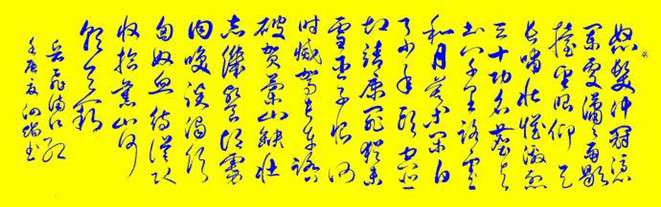 怒髮冲冠憑
闌處瀟瀟雨歇
擡望眼仰天
長嘯壯懷激烈
三十功名塵與
土八千里路雲
和月莫等閑白
了少年頭空悲
切靖康恥猶未
雪臣子恨何
時滅駕長車踏
破賀蘭山缺壯
志饑餐胡虜
肉笑談渴飲
匈奴血待從頭
收拾舊山河
朝天闕
岳飛滿江紅
壬辰夏書